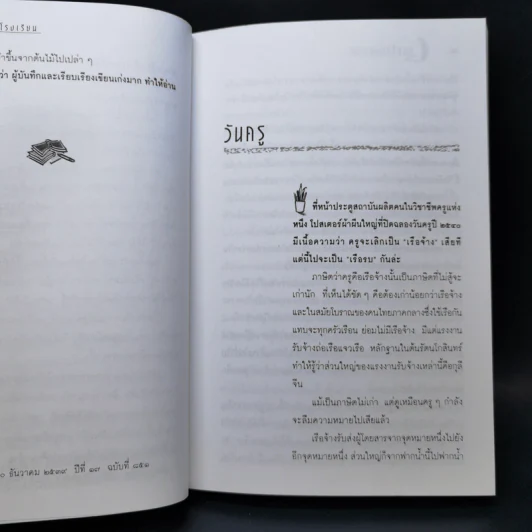 โรงเรียน
ขึ้นจากต้นไม้ไปเปล่า ๆ
ว่า ผู้บันทึกและเรียบเรียงเขียนเก่งมาก ทำให้อ่าน
ธันวาคม ๒๕๓๙ ปีที่ ๑๗ ฉบับที่ ๘๕๑
วันครู
ที่หน้าประตูสถาบันผลิตคนในวิชาชีพครูแห่ง
หนึ่ง โปสเตอร์ผ้าผืนใหญ่ที่ปิดฉลองวันครูปี ๒๕๔๐
มีเนื้อความว่า ครูจะเลิกเป็น "เรือจ้าง" เสียที
แต่นี้ไปจะเป็น "เรือรบ" กันล่ะ
ภาษิตว่าครูคือเรือจ้างนั้นเป็นภาษิตที่ไม่สู้จะ
เก่านัก ที่เห็นได้ชัด ๆ คือต้องเก่าน้อยกว่าเรือจ้าง
และในสมัยโบราณของคนไทยภาคกลางซึ่งใช้เรือกัน
แทบจะทุกครัวเรือน ย่อมไม่มีเรือจ้าง มีแต่แรงงาน
รับจ้างถ่อเรือแจวเรือ หลักฐานในต้นรัตนโกสินทร์
ทำให้รู้ว่าส่วนใหญ่ของแรงงานรับจ้างเหล่านี้คือกุลี
จีน
แม้เป็นภาษิตไม่เก่า แต่ดูเหมือนครู ๆ กำลัง
จะลืมความหมายไปเสียแล้ว
เรือจ้างรับส่งผู้โดยสารจากจุดหมายหนึ่งไปยัง
อีกจุดหมายหนึ่ง ส่วนใหญ่ก็จากฟากน้ำนี้ไปฟากน้ำ